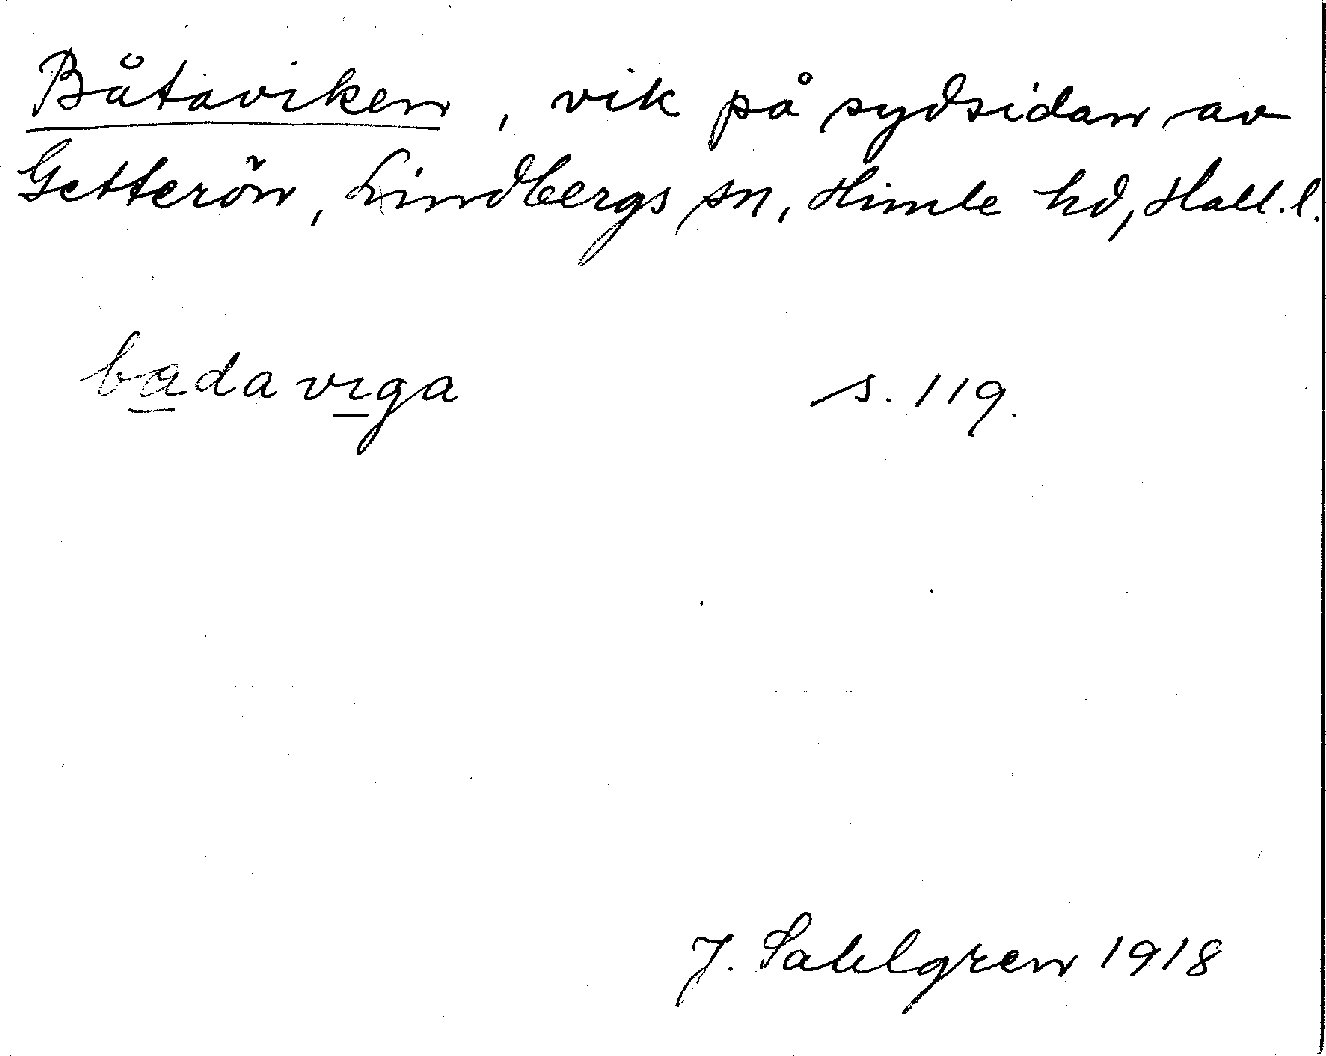 Båtaviken, vik på sydsidan av
Getterön, Lindbergs sn, Himle hd, Hall.l.
badaviga s. 119.
J. Sahlgren 1918